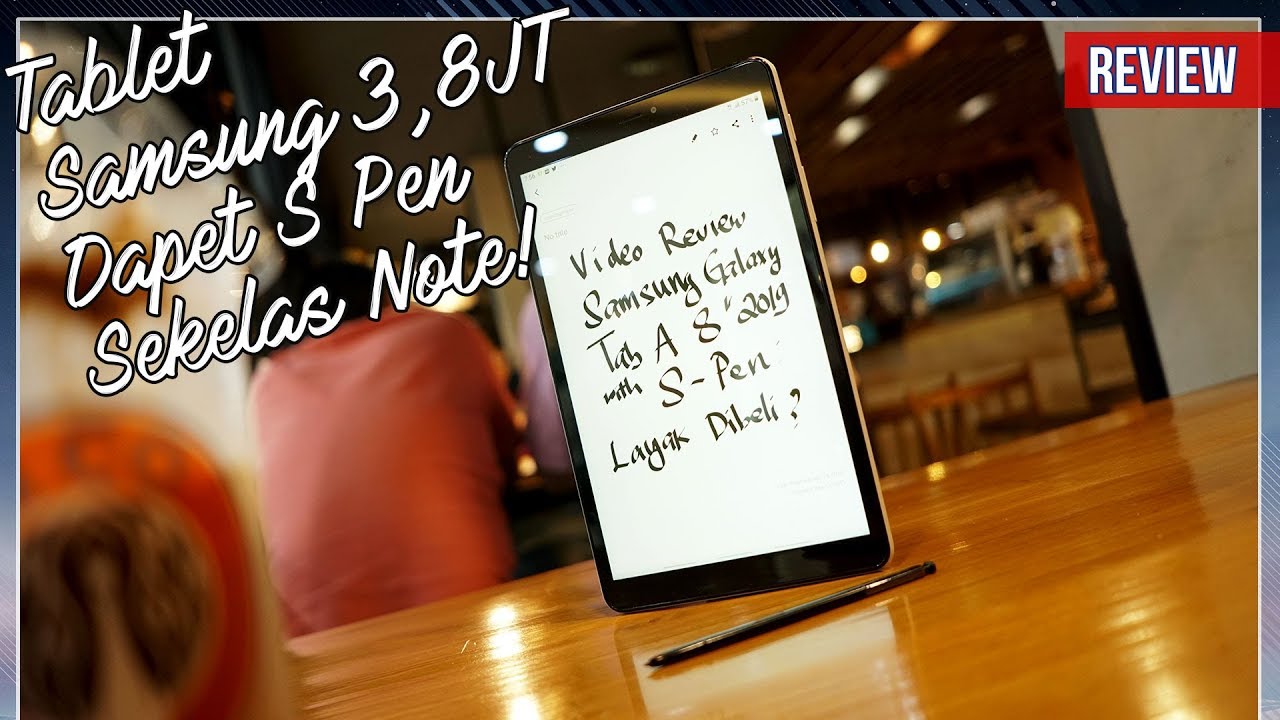 Tablet
Samsung 3,8JT
Dapet S Pen
Sekelas Note!
REVIEW
Video Review
Samsung Galaxy
Tab A 8" 2019
with S-Pen
Layak Dibeli?